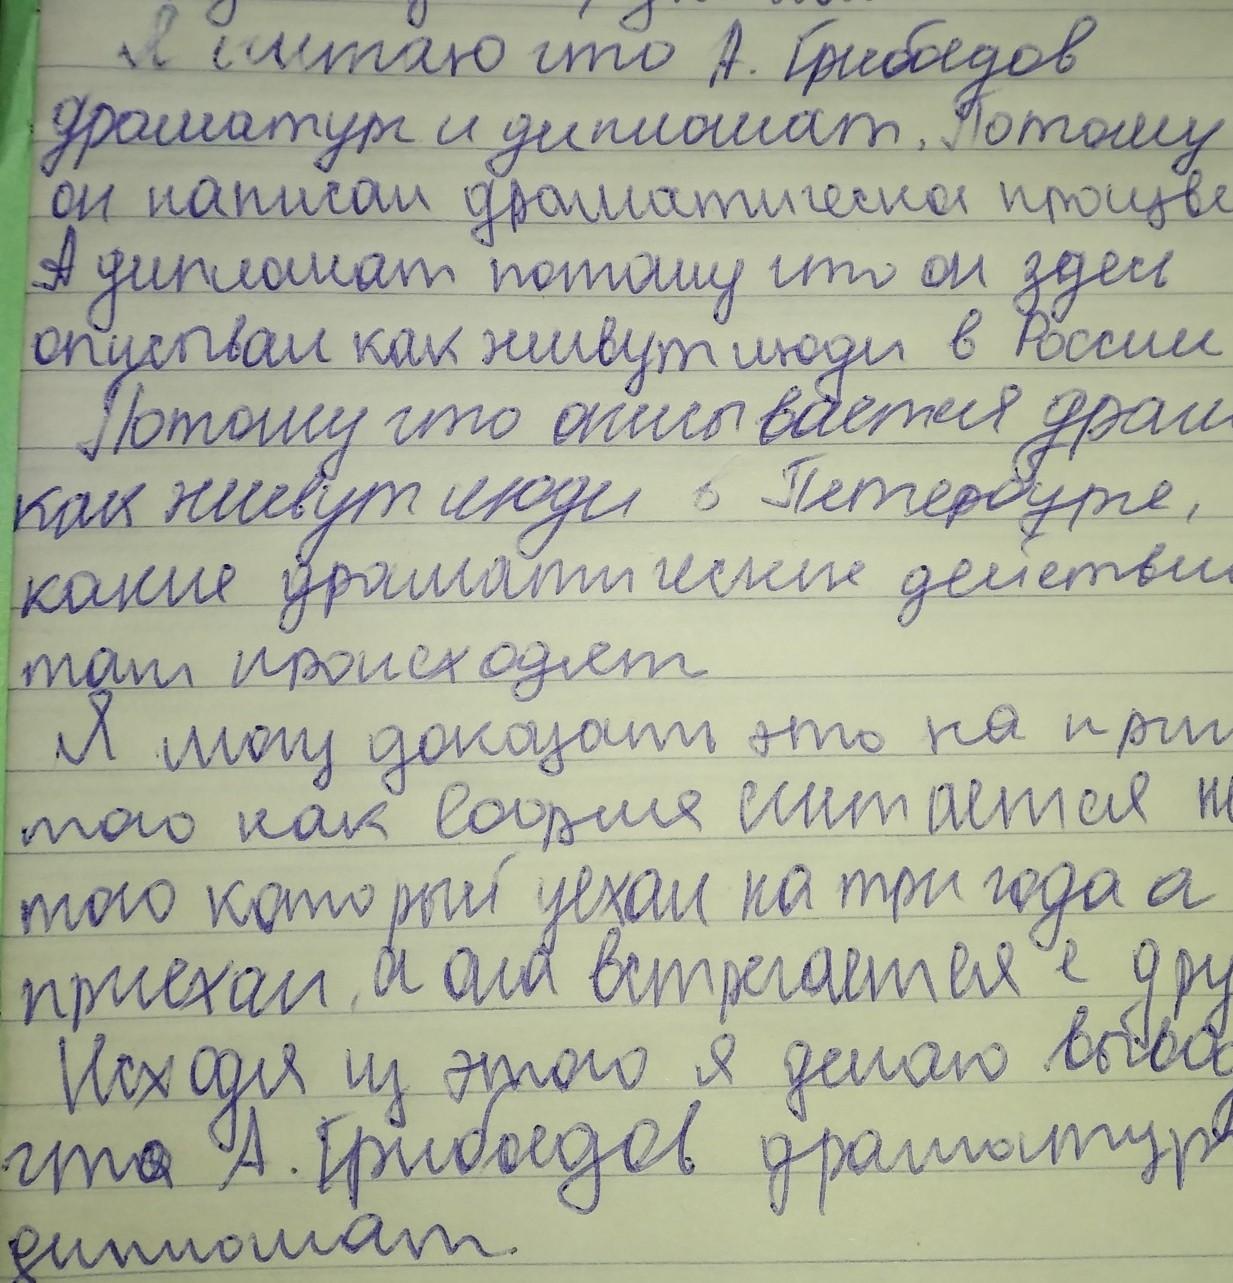 Я считаю что А. Грибоедов
драматург и дипломат. Потому
он написал драматическа произве
А дипломат потому что он здесь
опусывал как живут люди в России
Потому что описывается драм
как живут люди в Петербурге,
какие драматические действи
там происходят
Я могу доказать это на при
того как София считается
того который уехал на три года а
приехал, а она встречается с дру
Исходя из этого я делаю вывод
что А. Грибоедов драматург
дипломат.